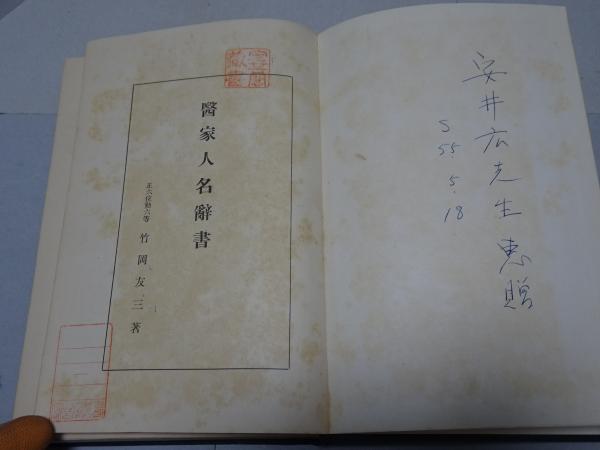 安井広先生 恵贈
S
55.
5.
18
醫家人名辭書
正六位勳六等 竹岡友三著